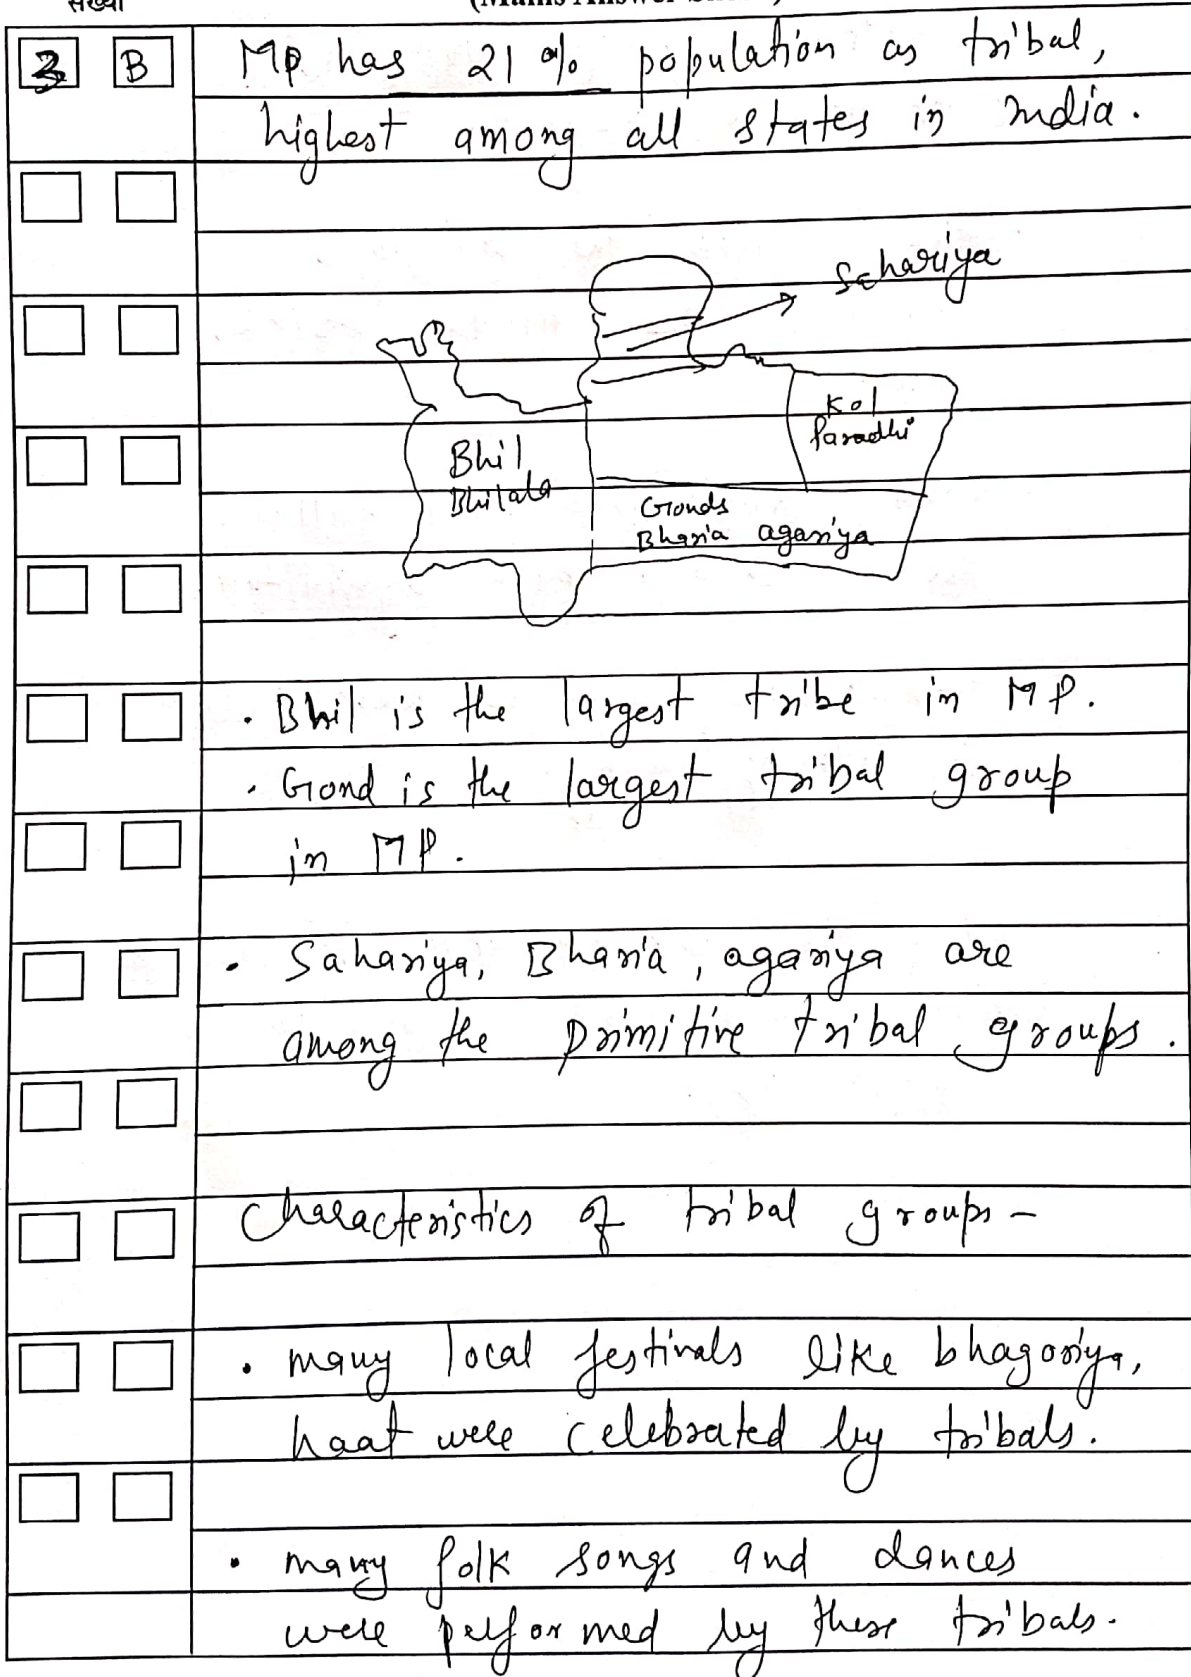 संख्या
3 B
MP has 21% population as tribal,
highest among all states in India.
Sahariya
Kol
Paradhi
Bhil
Bhilala
Gonds
Bharia agariya
• Bhil is the largest tribe in MP.
• Gond is the largest tribal group
in MP.
• Sahariya, Bharia, agariya are
among the primitive tribal groups.
Characteristics of tribal groups -
• many local festivals like bhagoriya,
haat were celebrated by tribals.
• many folk songs and dances
were performed by these tribals.